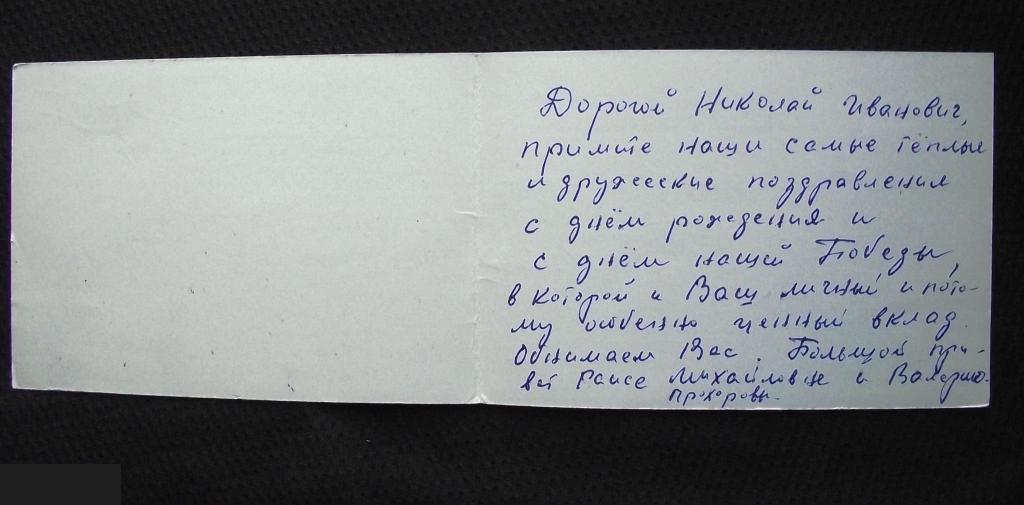 Дорогой Николай Иванович,
примите наши самые тёплые
и дружеские поздравления
с днём рождения и
с днём нашей Победы,
в которой и Ваш личный и пото-
му особенно ценный вклад.
Обнимаем Вас. Большой при-
вет Раисе Михайловне и Валерию.
Прохоровы.